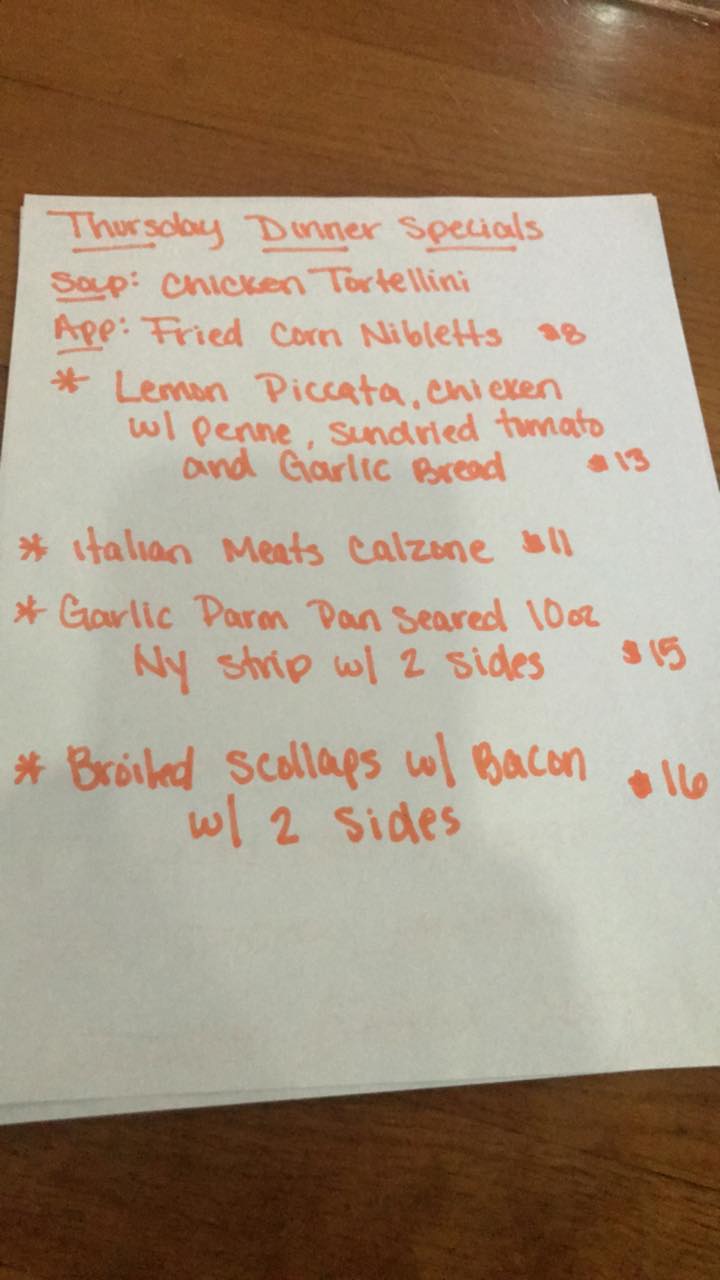 Thursday Dinner Specials
Soup: Chicken Tortellini
App: Fried Corn Nibletts $8
* Lemon Piccata, Chicken
w/ penne, sundried tomato
and Garlic Bread $13
* Italian Meats Calzone $11
* Garlic Parm Pan Seared 10oz
Ny strip w/ 2 sides $15
* Broiled Scollaps w/ Bacon $16
w/ 2 sides